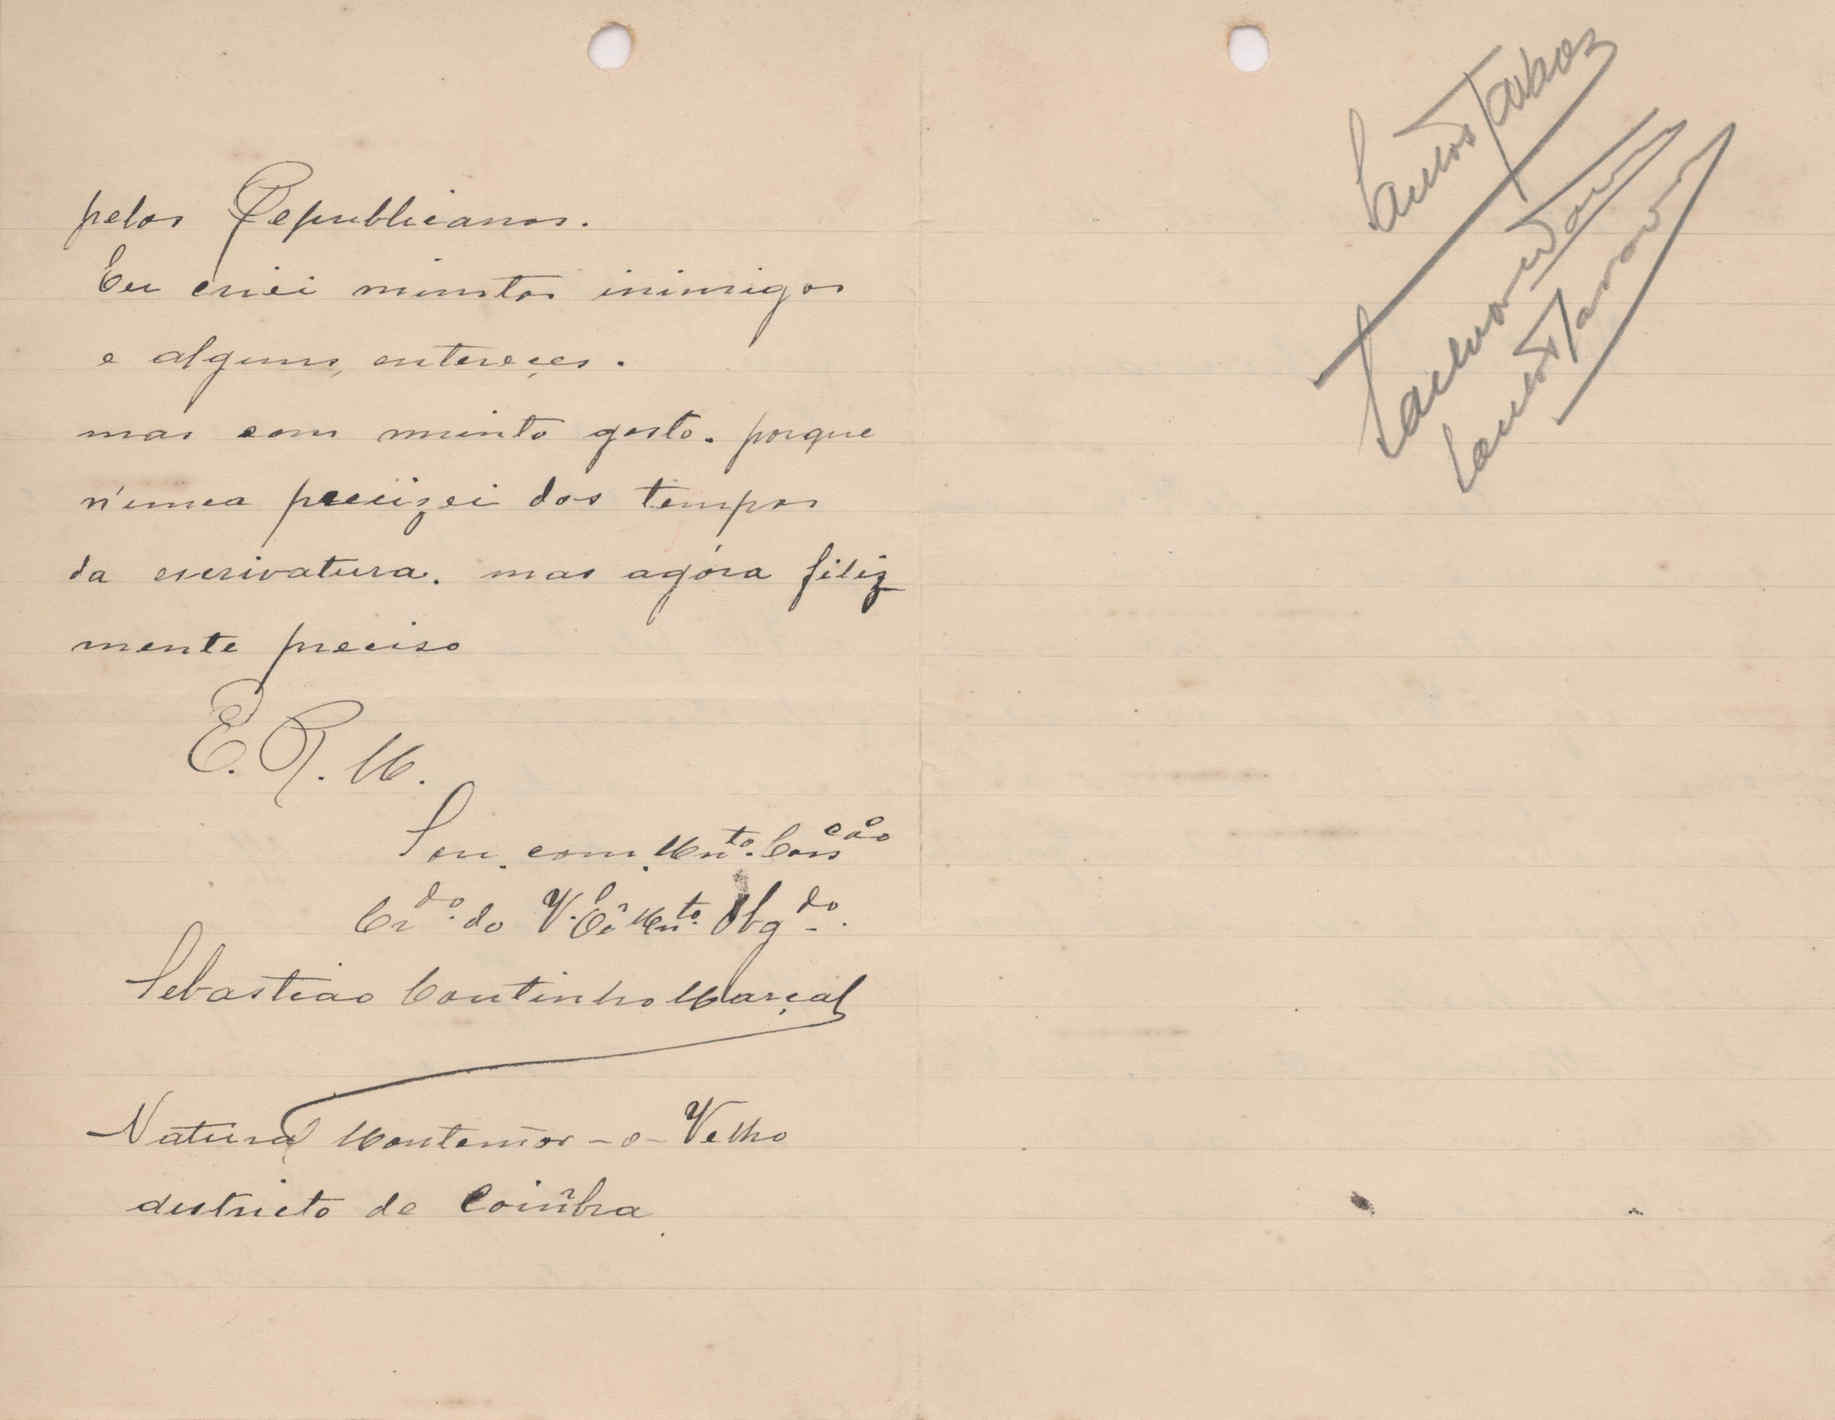 pelos Republicanos.
Eu criei muintos inimigos
e alguns, entereçes.
mas com muinto gosto. porque
n'unca precizei dos tempos
da escrivatura. mas agóra filiz
mente preciso
E. R. M.
Sou. com. Mn.to Conscão
Cr.do do V. Ex Mn.to Obg.do
Sebastiao Coutinho Marçal
Natural Montemor-o-Velho
districto de Coimbra
Santos Tavares
Santos Tavares